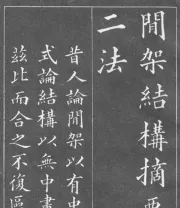 閒架結構摘要
二法
昔人論閒架以有中
式論結構以無中畫
茲比而合之不復區